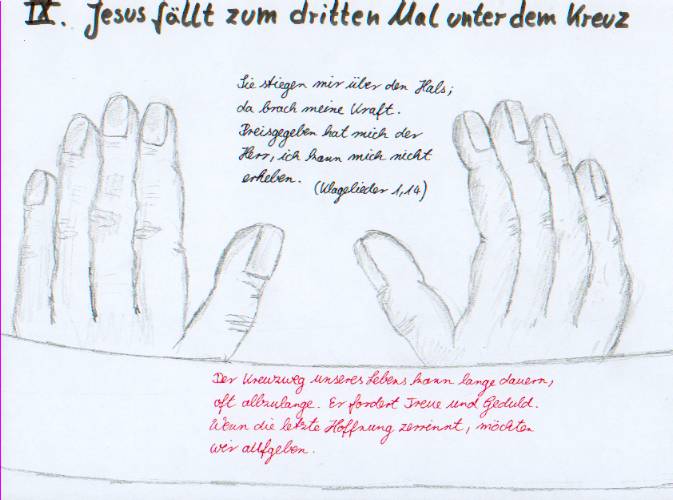 IX. Jesus fällt zum dritten Mal unter dem Kreuz
Sie stiegen mir über den Hals;
da brach meine Kraft.
Preisgegeben hat mich der
Herr, ich kann mich nicht
erheben.
(Klagelieder 1,14)
Der Kreuzweg unseres Lebens kann lange dauern,
oft allzulange. Er fordert Treue und Geduld.
Wenn die letzte Hoffnung zerrinnt, möchten
wir aufgeben.